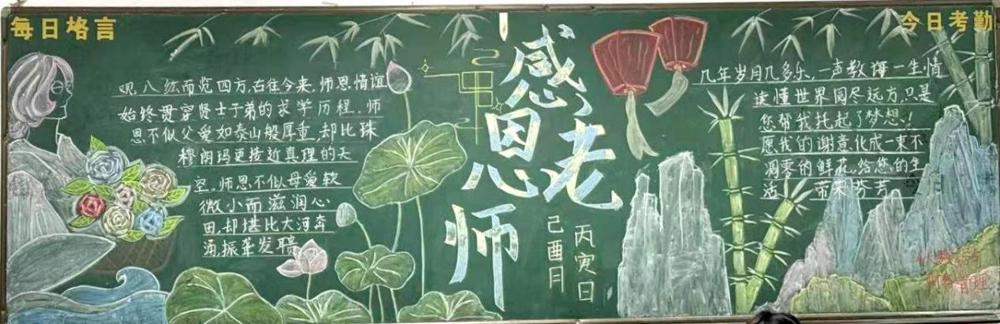 每日格言
观八纮而览四方，古往今来，师恩情谊
始终贯穿贤士子弟的求学历程，师
恩不似父爱如泰山般厚重，却比珠
穆朗玛更接近真理的天
空，师恩不似母爱软
微小而滋润心
田，却堪比大河奔
涌，振聋发聩
感恩老师
丙寅日
己酉月
今日考勤
几年岁月几多乐，一声教诲一生情
读懂世界同尽远方，只是
您帮我托起了梦想！
愿我的谢意化成一束不
凋零的鲜花，给您的生
活 带来芬芳